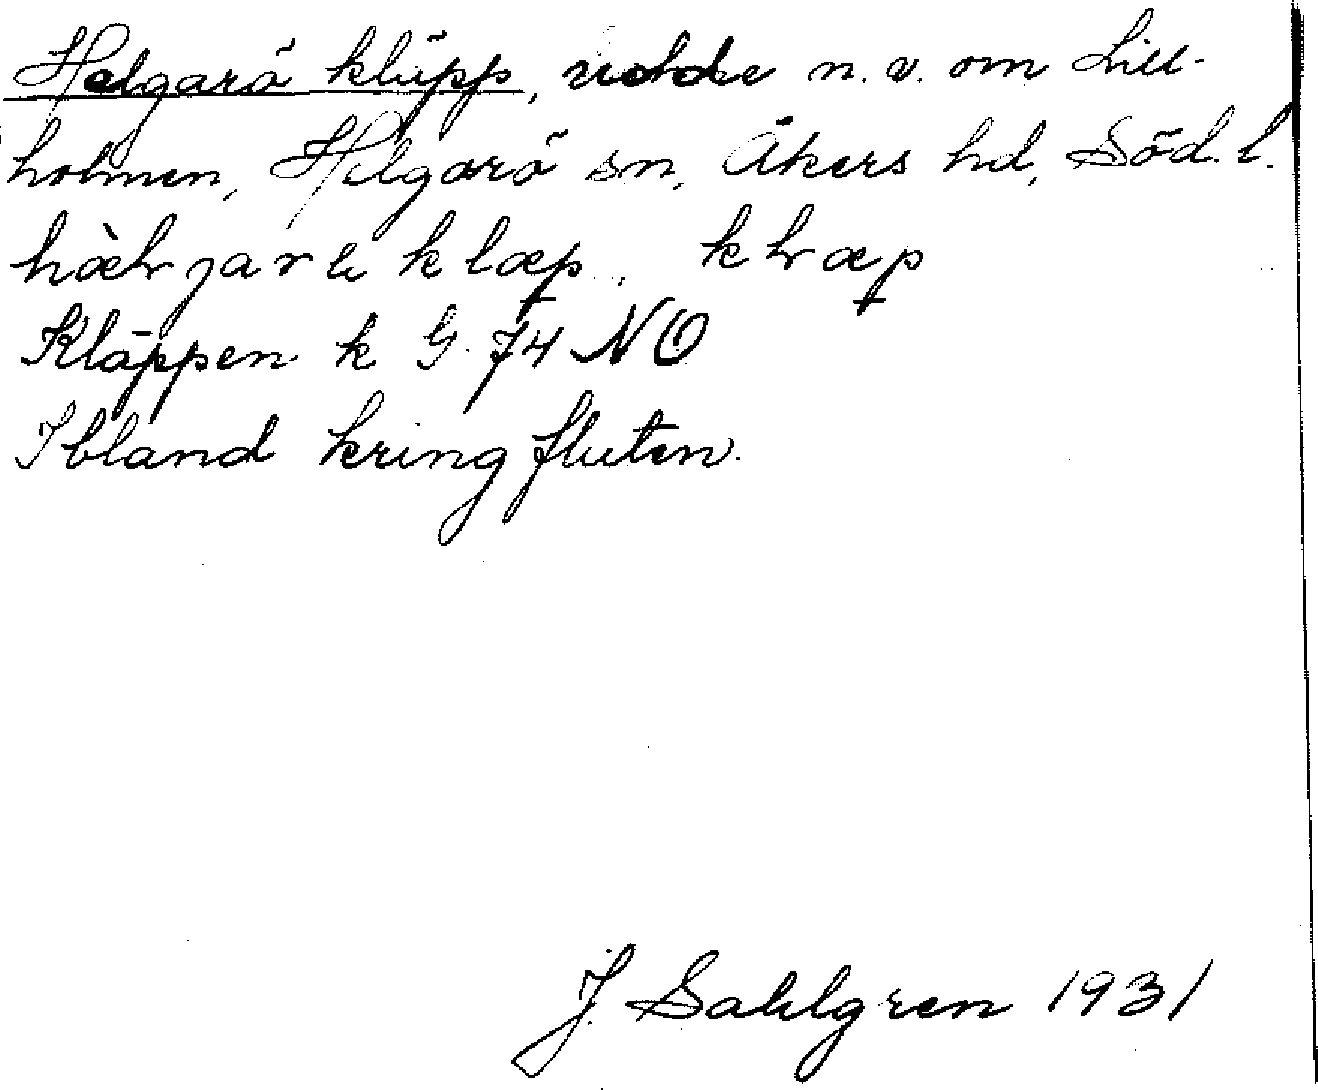 Helgarö kläpp, udde n.v. om Lill-
holmen, Helgarö sn, Åkers hd, Söd. l.
klæp.
Kläppen k G. 74 NO
Ibland kringfluten.
J. Sahlgren 1931